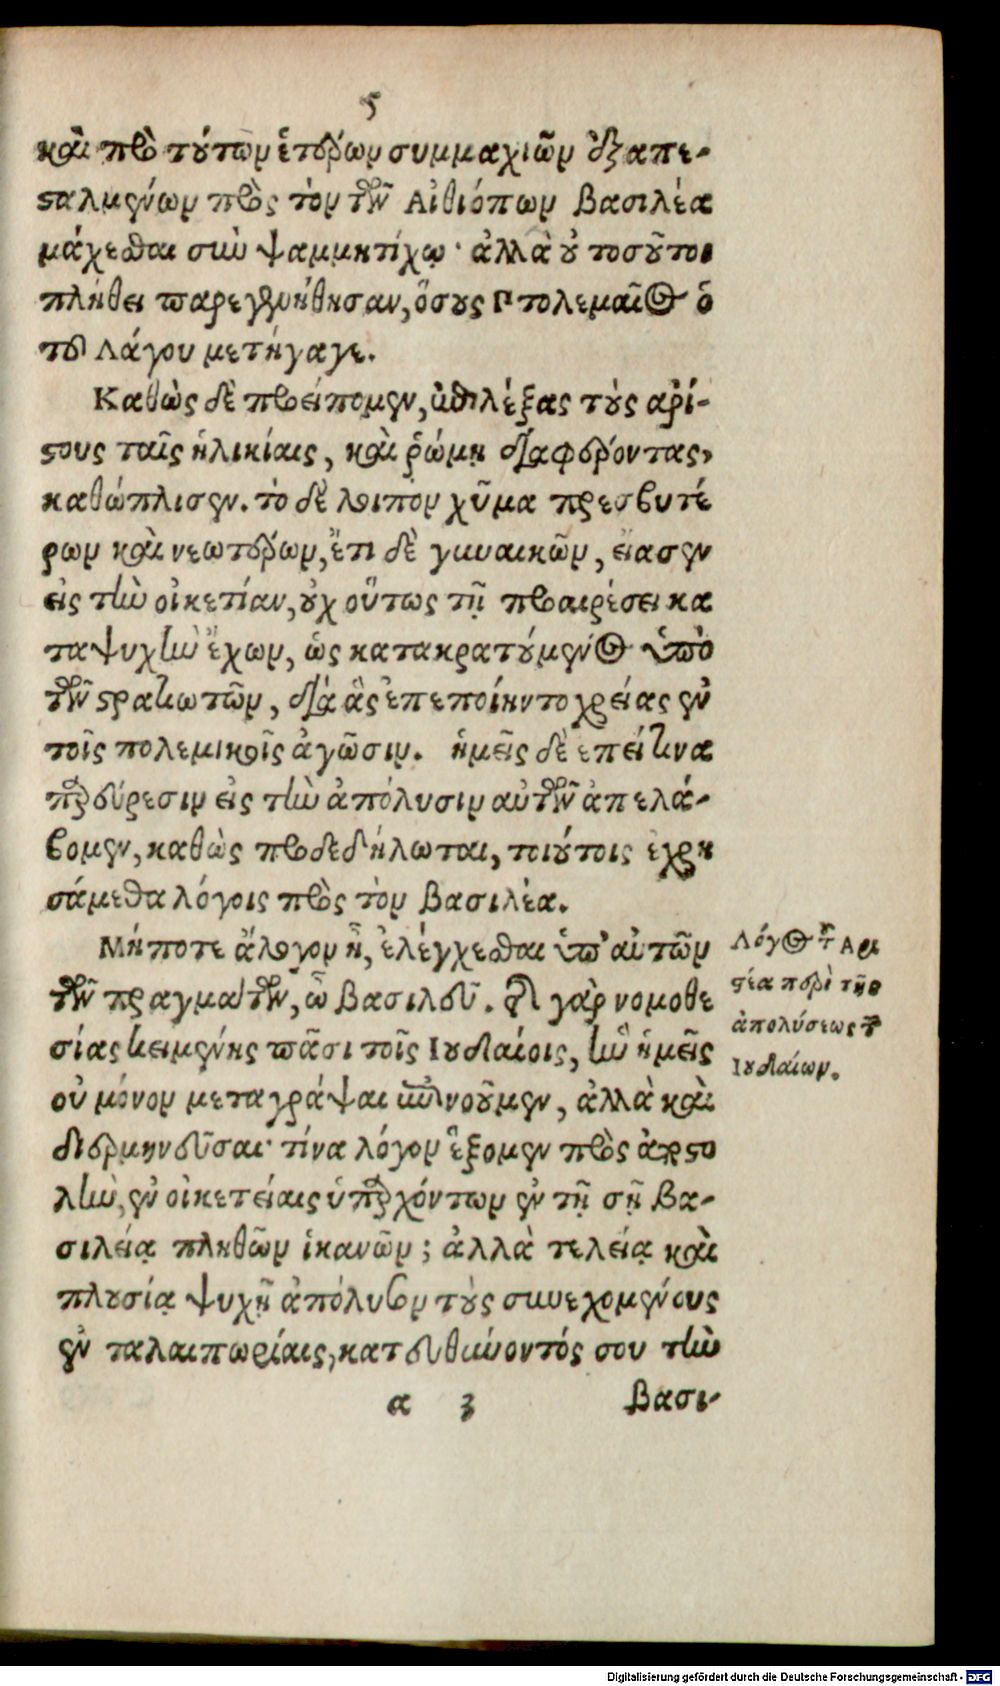 5
καὶ πρὸ τούτων ἑτέρων συμμαχιῶν ἐξαπε-
σταλμένων πρὸς τὸν τῶν Αἰθιόπων βασιλέα
μάχεσθαι σὺν ψαμμητίχῳ· ἀλλὰ οὐ τοσοῦτοι
πλήθει παρεγενήθησαν, ὅσους Πτολεμαῖος ὁ
τοῦ Λάγου μετήγαγε.
Καθὼς δὲ προείπομεν, ἐπιλέξας τοὺς ἀρί-
στους ταῖς ἡλικίαις, καὶ ῥώμῃ διαφέροντας,
καθώπλισεν. τὸ δὲ λοιπὸν χῦμα πρεσβυτέ
ρων καὶ νεωτέρων, ἔτι δὲ γυναικῶν, εἴασεν
εἰς τὴν οἰκετίαν, οὐχ οὕτως τῇ προαιρέσει κα
τα ψυχὴν ἔχων, ὡς κατακρατούμενος ὑπὸ
τῶν στρατιωτῶν, διὰ ἃς ἐπεποίηντο χρείας ἐν
τοῖς πολεμικοῖς ἀγῶσιν. ἡμεῖς δὲ ἐπεί τινα
παρεύρεσιν εἰς τὴν ἀπόλυσιν αὐτῶν ἀπελά-
βομεν, καθὼς προδεδήλωται, τοιούτοις ἐχρη
σάμεθα λόγοις πρὸς τὸν βασιλέα.
Μήποτε ἄλογον ᾖ, ἐλέγχεσθαι ὑπ' αὐτῶν
τῶν πραγμάτων, ὦ βασιλεῦ. τῆς γὰρ νομοθε
σίας κειμένης πᾶσι τοῖς Ἰουδαίοις, ἣν ἡμεῖς
οὐ μόνον μεταγράψαι ἐπινοοῦμεν, ἀλλὰ καὶ
διερμηνεῦσαι· τίνα λόγον ἕξομεν πρὸς ἀποστο
λὴν, ἐν οἰκετείαις ὑπαρχόντων ἐν τῇ σῇ βα-
σιλείᾳ πληθῶν ἱκανῶν; ἀλλὰ τελείᾳ καὶ
πλουσίᾳ ψυχῇ ἀπόλυσον τοὺς συνεχομένους
ἐν ταλαιπωρίαις, κατευθύνοντός σου τὴν
α 3 βασι-
Λόγος τοῦ Ἀρι
στέα περὶ τῆς
ἀπολύσεως τῶν
Ἰουδαίων.
Digitalisierung gefördert durch die Deutsche Forschungsgemeinschaft - DFG